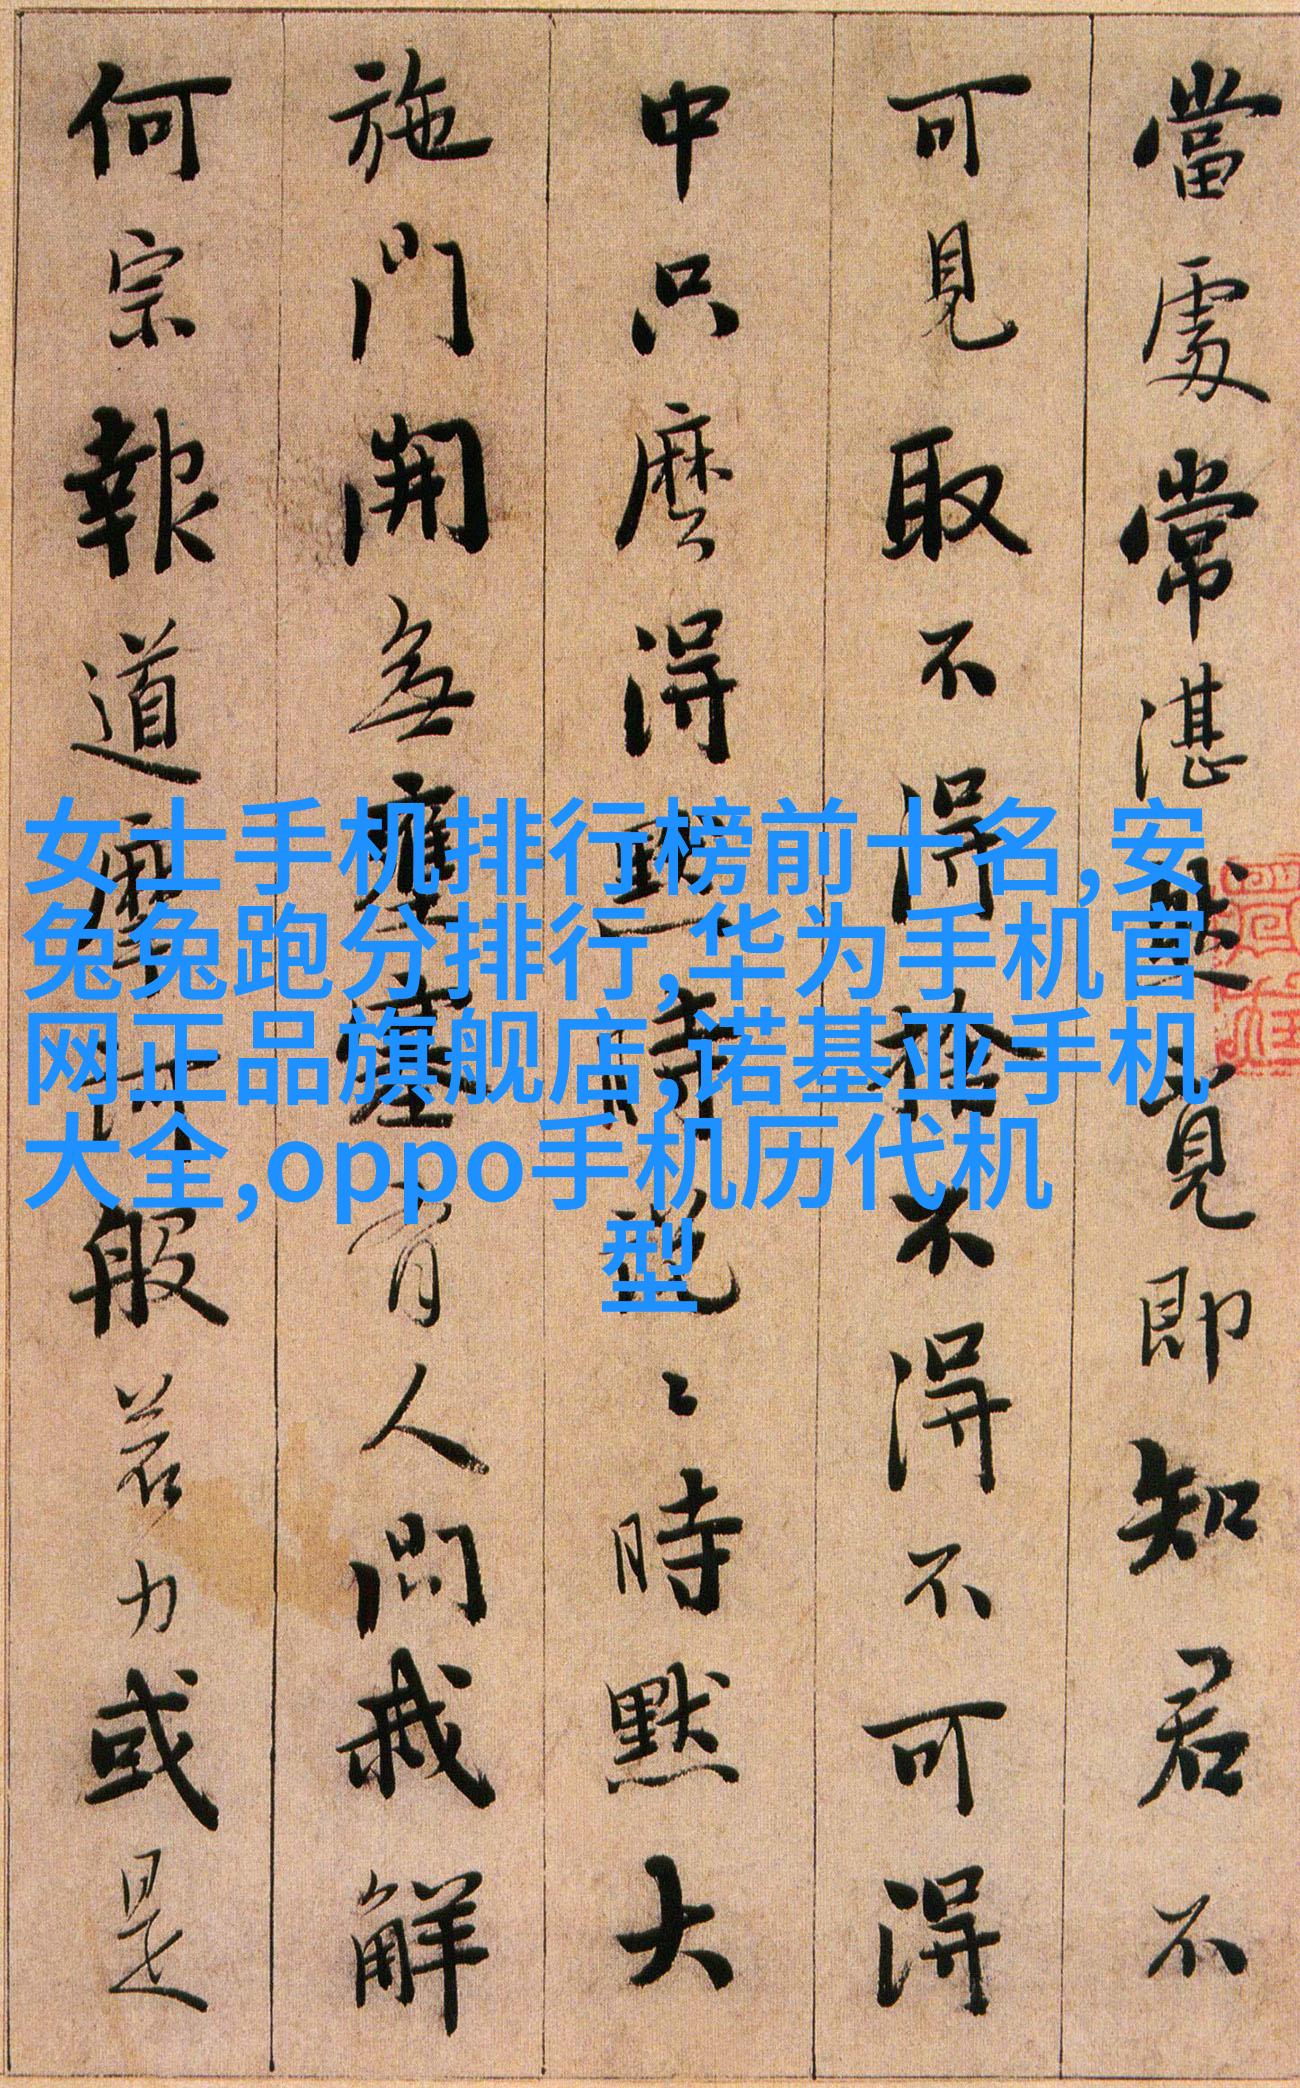 當處常湛然覓即知君不
可見取不得捨不得不可得
中只麼得默時說〻時默大
施門開無壅塞有人問我解
何宗報道摩訶般若力或是
女士手机排行榜前十名,安
兔兔跑分排行,华为手机官
网正品旗舰店,诺基亚手机
大全,oppo手机历代机
型